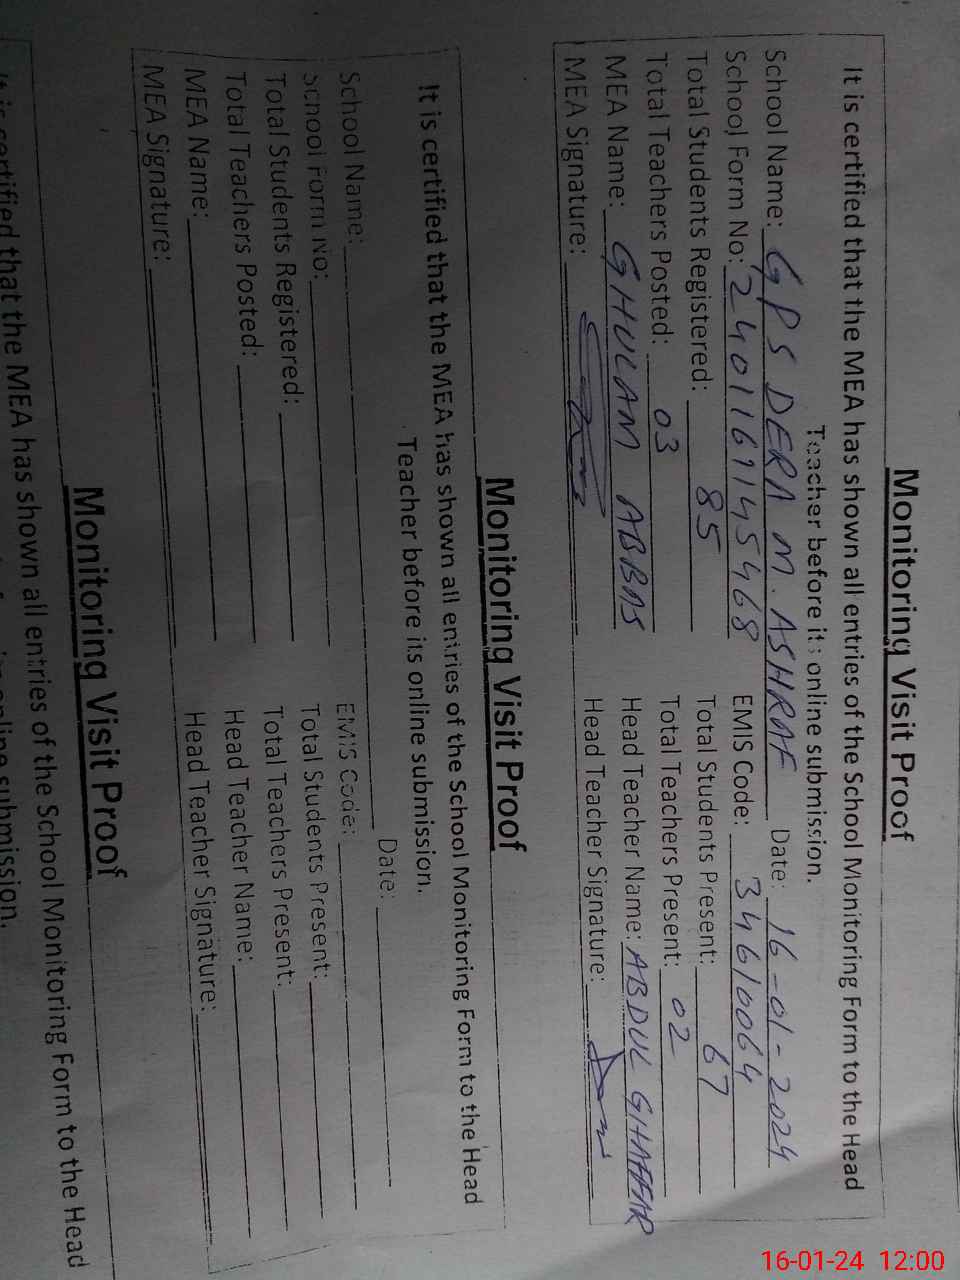 Monitoring Visit Proof
It is certified that the MEA has shown all entries of the School Monitoring Form to the Head
Teacher before its online submission.
School Name: GPS DERA M. ASHRAF Date: 16-01-2024
School Form No: 2401161145468 EMIS Code: 34610064
Total Students Registered: 85 Total Students Present: 67
Total Teachers Posted: 03 Total Teachers Present: 02
MEA Name: GHULAM ABBAS Head Teacher Name: ABDUL GHAFFAR
MEA Signature: Head Teacher Signature:
Monitoring Visit Proof
It is certified that the MEA has shown all entries of the School Monitoring Form to the Head
Teacher before its online submission.
Date:
School Name: EMIS Code:
School Form No: Total Students Present:
Total Students Registered: Total Teachers Present:
Total Teachers Posted: Head Teacher Name:
MEA Name: Head Teacher Signature:
MEA Signature:
Monitoring Visit Proof
It is certified that the MEA has shown all entries of the School Monitoring Form to the Head
online submission.
16-01-24 12:00